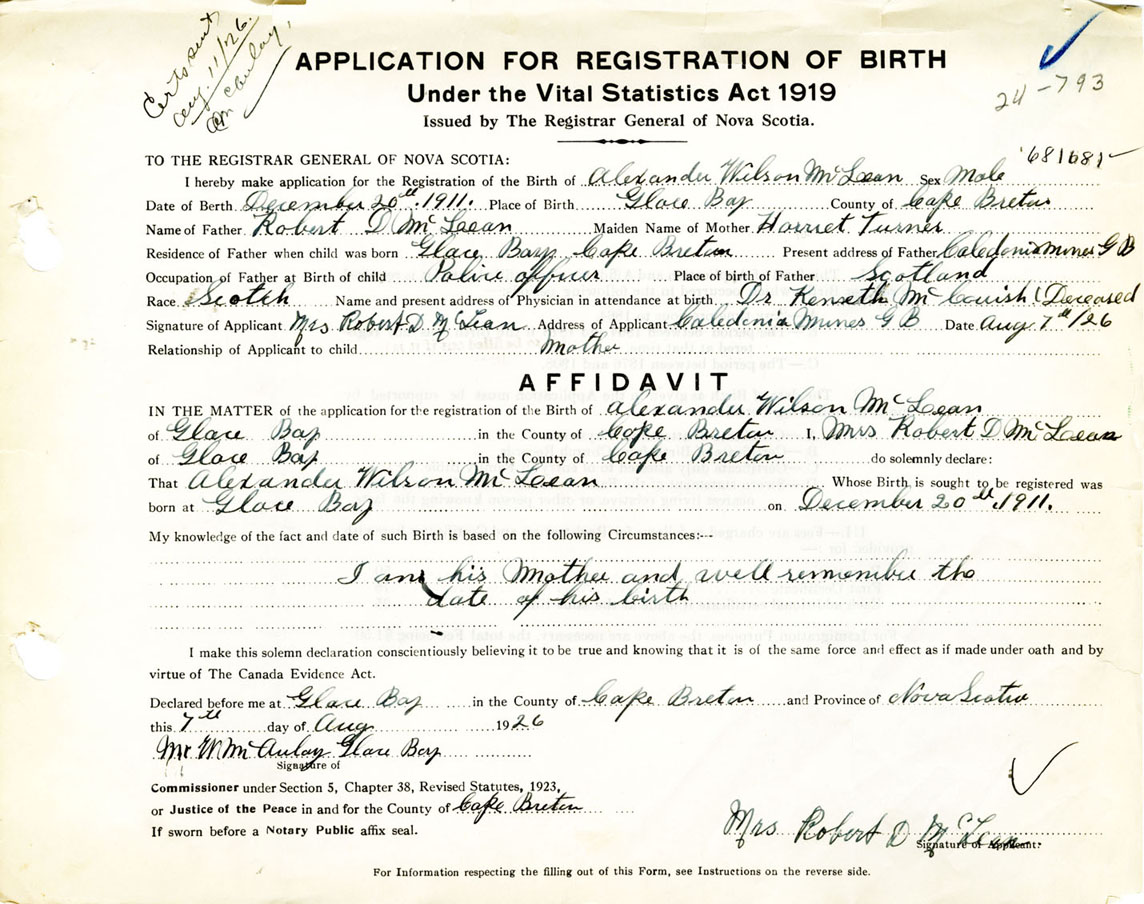 Certs sent
Aug. 11/26.
McAulay,
24-793
APPLICATION FOR REGISTRATION OF BIRTH
Under the Vital Statistics Act 1919
Issued by The Registrar General of Nova Scotia.
681681
TO THE REGISTRAR GENERAL OF NOVA SCOTIA:
I hereby make application for the Registration of the Birth of Alexander Wilson McLean Sex Male
Date of Berth December 20th 1911. Place of Birth Glace Bay County of Cape Breton
Name of Father Robert D McLean Maiden Name of Mother Harriet Turner
Residence of Father when child was born Glace Bay Cape Breton Present address of Father Caledonia Mines G B
Occupation of Father at Birth of child Police officer Place of birth of Father Scotland
Race Scotch Name and present address of Physician in attendance at birth Dr Kenneth McCuish (Deceased
Signature of Applicant Mrs Robert D McLean Address of Applicant Caledonia Mines G B Date Aug 7th/26
Relationship of Applicant to child Mother
AFFIDAVIT
IN THE MATTER of the application for the registration of the Birth of Alexander Wilson McLean
of Glace Bay in the County of Cape Breton I, Mrs Robert D McLean
of Glace Bay in the County of Cape Breton do solemnly declare:
That Alexander Wilson McLean Whose Birth is sought to be registered was
born at Glace Bay on December 20th 1911.
My knowledge of the fact and date of such Birth is based on the following Circumstances:---
I am his Mother and well remember the
date of his birth
I make this solemn declaration conscientiously believing it to be true and knowing that it is of the same force and effect as if made under oath and by
virtue of The Canada Evidence Act.
Declared before me at Glace Bay in the County of Cape Breton and Province of Nova Scotia
this 7th day of Aug 1926
Mr W McAulay Glace Bay
Signature of
Commissioner under Section 5, Chapter 38, Revised Statutes, 1923,
or Justice of the Peace in and for the County of Cape Breton
If sworn before a Notary Public affix seal.
Mrs Robert D McLean
Signature of Applicant:
For Information respecting the filling out of this Form, see Instructions on the reverse side.